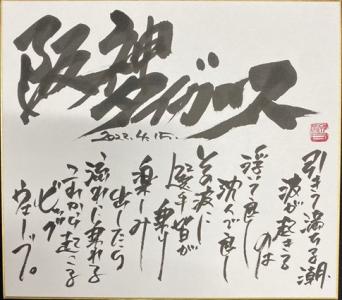 阪神
タイガース
2022.4.15.
引きて満ちる潮.
波が起きる
のは
浮いて良し
沈んで良し
その波に
選手皆が
乗り
楽しみ
出したら
流れに乗れる
これから起こる
ビッグ
ウェーブ。